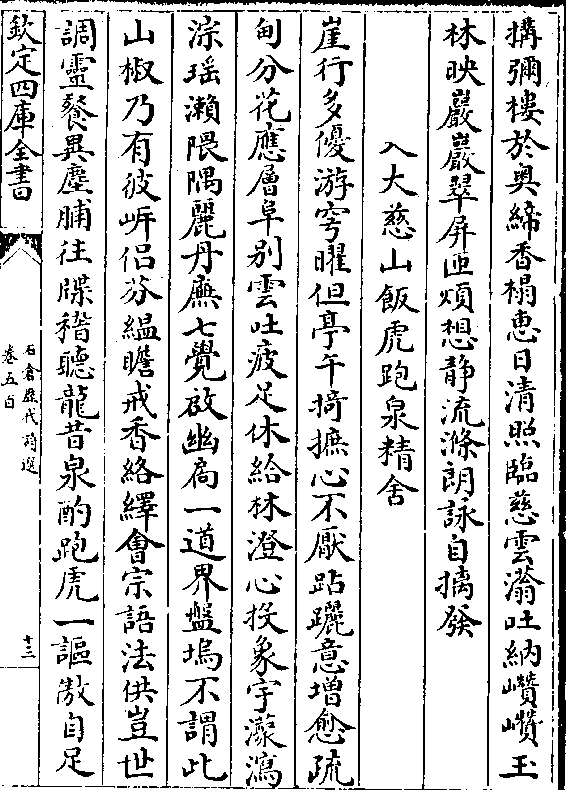 搆彌樓於奥締香榻惠日清照臨慈雲滃吐納巑巑玉
林映巖巖翠屏匝煩想静流滌朗詠自摛發
入大慈山飯虎跑泉精舍
崖行多優游穹曜但亭午掎摭心不厭跕躧意增愈疏
甸分花應層阜别雲吐疲足休給林澄心投象宇瀿瀉
淙瑶瀨隈隅麗丹廡七覺啟幽扃一道界盤塢不謂此
山椒乃有彼岍侣芬緼瞻戒香絡繹會宗語法供豈世
調靈餐異塵脯往牒稽聽龍昔泉酌跑虎一謳敖自足
欽定四庫全書
石倉歷代詩選
卷五百
十三